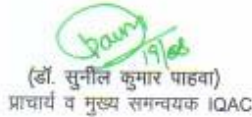 19/08
(डॉ. सुनील कुमार पाहवा)
प्राचार्य व मुख्य समन्वयक IQAC